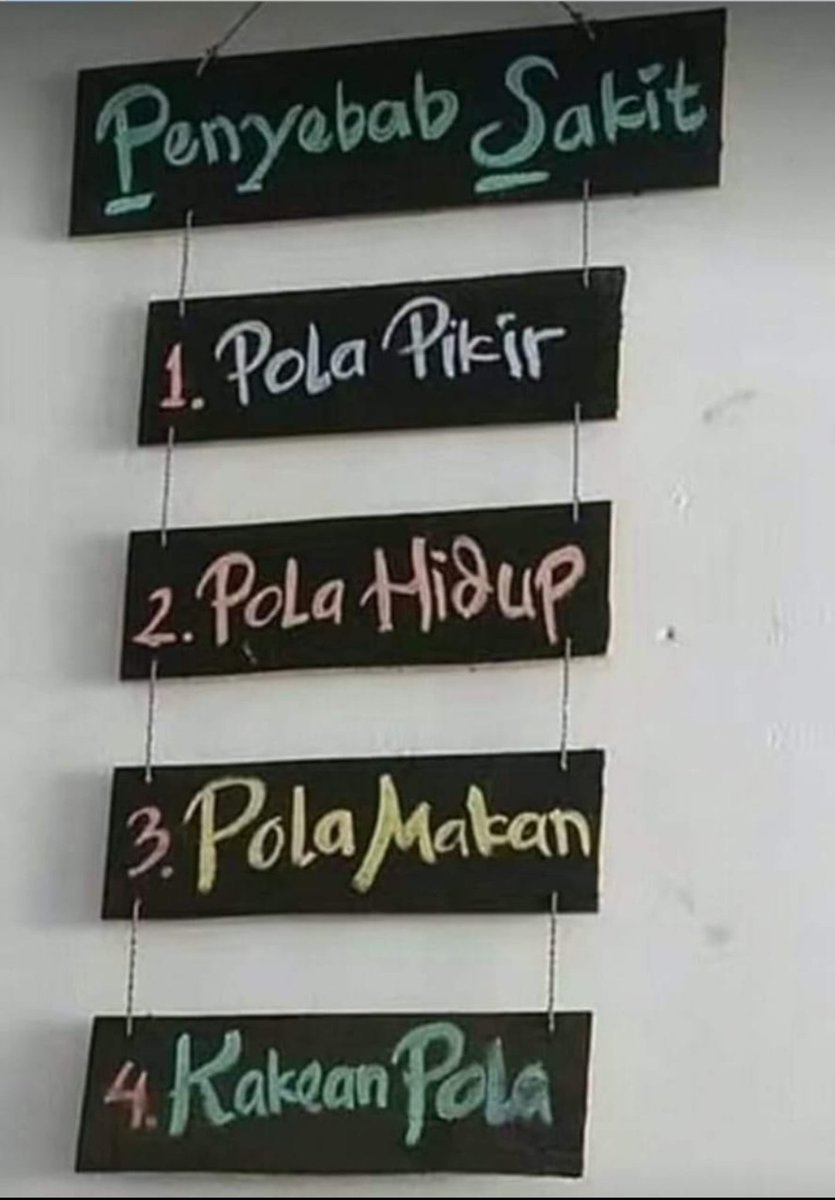 Penyebab Sakit
1. Pola Pikir
2. Pola Hidup
3. Pola Makan
4. Kakean Pola